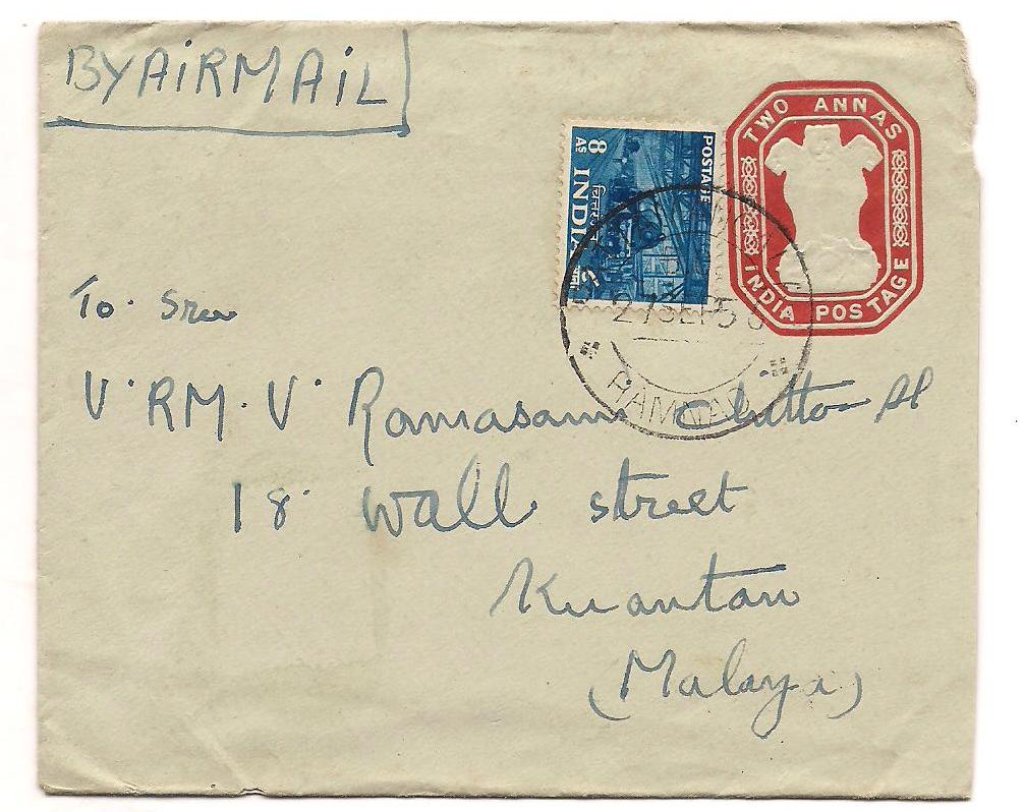 BY AIRMAIL
TWO ANNAS
INDIA POSTAGE
POSTAGE
8 AS INDIA
27 SEP 56
RAMNAD
To. Sree
V. RM. V. Ramasami Chettiar
18 Wall Street
Kuantan
(Malaya)